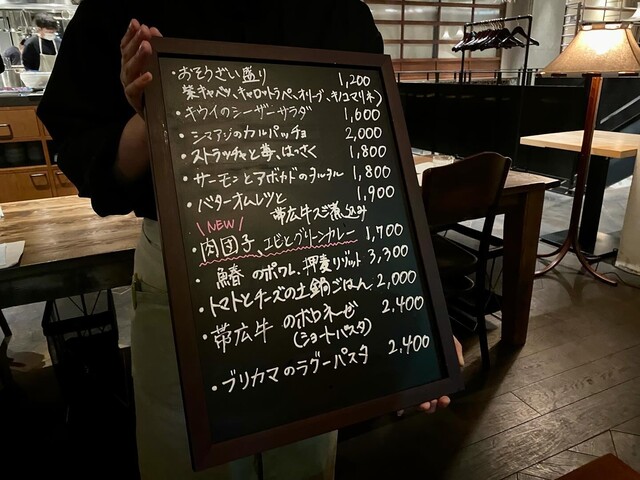 ・おそうざい盛り 1,200
紫キャベツ、キャロットラペ、オリーブ、キノコマリネ〉
・キウイのシーザーサラダ 1,600
・シマアジのカルパッチョ 2,000
・ストラッチャと苺、はっさく 1,800
・サーモンとアボカドのタルタル 1,800
・バターオムレツと 1,900
帯広牛スジ煮込み
\NEW/
・肉団子、エビとグリーンカレー 1,700
・鰆のポワレ、押麦リゾット 3,300
・トマトとチーズの土鍋ごはん 2,000
・帯広牛のボロネーゼ 2,400
(ショートパスタ)
・ブリカマのラグーパスタ 2,400